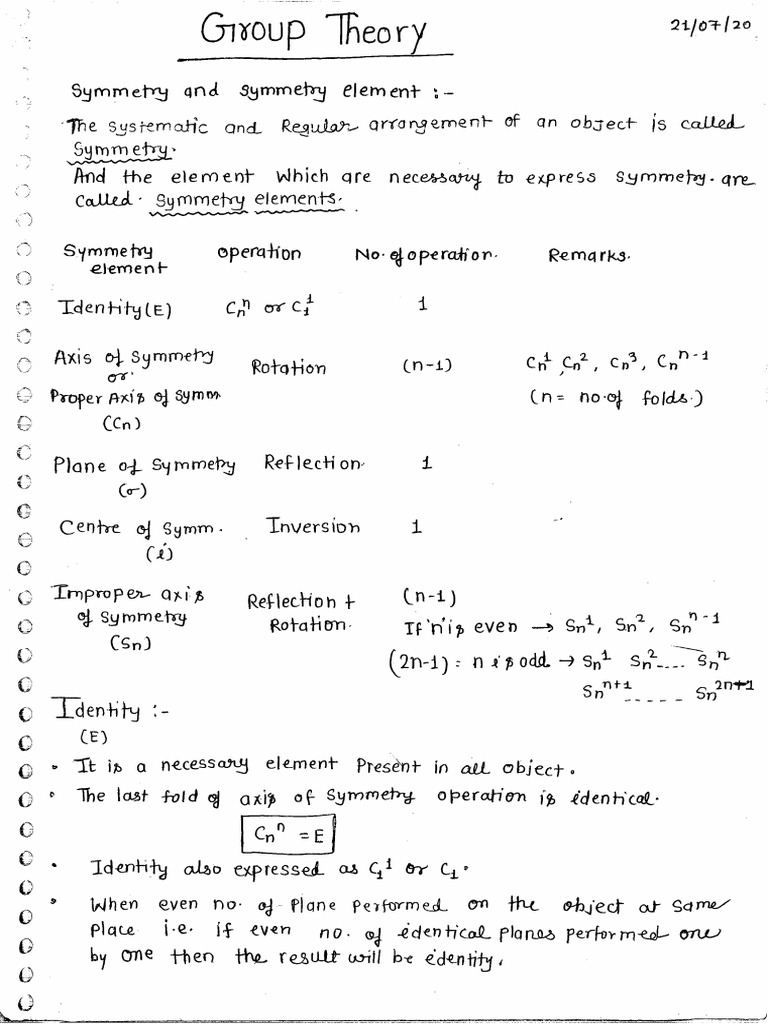 Group Theory
21/07/20
Symmetry and symmetry element :-
The systematic and Regular arrangement of an object is called
Symmetry.
And the element which are necessary to express symmetry. are
called. symmetry elements.
Symmetry element operation No. of operation. Remarks.
Identity (E) Cₙⁿ or C₁¹ 1
Axis of Symmetry or. Rotation (n-1) Cₙ¹, Cₙ², Cₙ³, Cₙⁿ⁻¹
Proper Axis of symm (n = no. of folds.)
(Cn)
Plane of symmetry Reflection. 1
(σ)
Centre of Symm. Inversion 1
(i)
Improper axis of symmetry Reflection + Rotation. (n-1)
(Sn) If 'n' is even → Sₙ¹, Sₙ², Sₙⁿ⁻¹
(2n-1) : n is odd → Sₙ¹ Sₙ² .... Sₙⁿ
Sₙⁿ⁺¹ ..... Sₙ²ⁿ⁺¹
Identity :-
(E)
• It is a necessary element Present in all object.
• The last fold of axis of symmetry operation is identical.
Cₙⁿ = E
• Identity also expressed as C₁¹ or C₁.
• When even no. of Plane performed on the object at same
place i.e. if even no. of identical planes performed one
by one then the result will be identity.